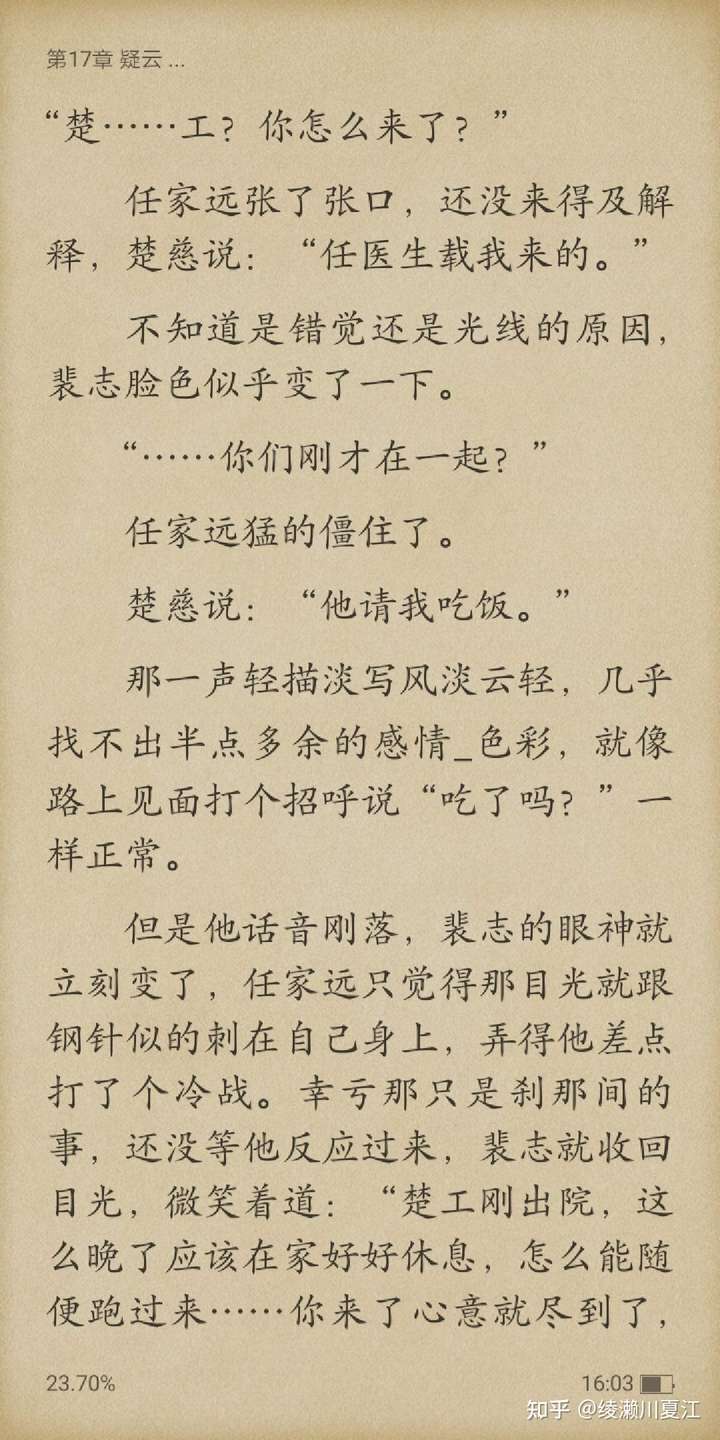 第17章 疑云 ...
“楚……工？你怎么来了？”
任家远张了张口，还没来得及解
释，楚慈说：“任医生载我来的。”
不知道是错觉还是光线的原因，
裴志脸色似乎变了一下。
“……你们刚才在一起？”
任家远猛的僵住了。
楚慈说：“他请我吃饭。”
那一声轻描淡写风淡云轻，几乎
找不出半点多余的感情_色彩，就像
路上见面打个招呼说“吃了吗？”一
样正常。
但是他话音刚落，裴志的眼神就
立刻变了，任家远只觉得那目光就跟
钢针似的刺在自己身上，弄得他差点
打了个冷战。幸亏那只是刹那间的
事，还没等他反应过来，裴志就收回
目光，微笑着道：“楚工刚出院，这
么晚了应该在家好好休息，怎么能随
便跑过来……你来了心意就尽到了，
23.70%
16:03
知乎 @绫濑川夏江